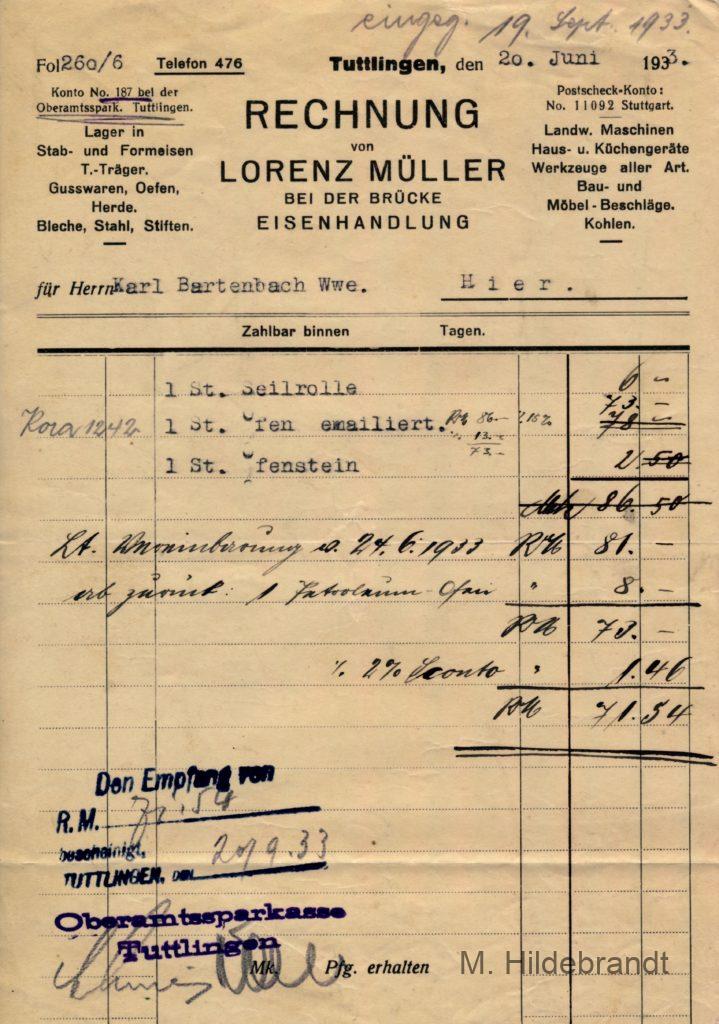 eingeg. 19. Sept. 1933.
Fol 260/6 Telefon 476 Tuttlingen, den 20. Juni 1933.
Konto No. 187 bei der
Oberamtsspark. Tuttlingen.
Lager in
Stab- und Formeisen
T.-Träger.
Gusswaren, Oefen,
Herde.
Bleche, Stahl, Stiften.
RECHNUNG
von
LORENZ MÜLLER
BEI DER BRÜCKE
EISENHANDLUNG
Postscheck-Konto:
No. 11092 Stuttgart.
Landw. Maschinen
Haus- u. Küchengeräte
Werkzeuge aller Art.
Bau- und
Möbel-Beschläge.
Kohlen.
für Herrn Karl Bartenbach Wwe. Hier.
Zahlbar binnen Tagen.
1 St. Seilrolle 6 -
73 -
Kora 1242 1 St. Ofen emailiert. RM 86.- ./. 15% 78 -
13.-
73.-
1 St. Ofenstein 2.50
86.50
Lt. Vereinbarung v. 24.6.1933 RM 81.-
ab zurück: 1 Petroleum-Ofen " 8.-
RM 73.-
./. 2% Sconto " 1.46
RM 71.54
Den Empfang von
R.M. 71.54
bescheinigt,
TUTTLINGEN, den 20/9.33
Oberamtssparkasse
Tuttlingen
Mk. Pfg. erhalten
M. Hildebrandt